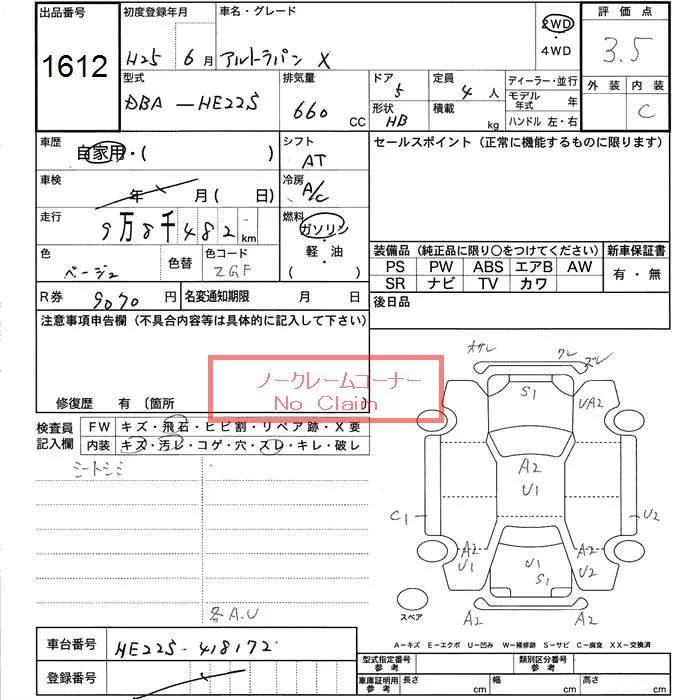 出品番号 初度登録年月 車名・グレード 評価点
1612 H25 6月 アルトラパン X 2WD・4WD 3.5
型式 排気量 ドア 定員 ディーラー・並行 外装 内装
DBA-HE22S 660CC 5 4人 モデル年式 年 C
形状 積載 ハンドル 左・右
HB kg
車歴 シフト セールスポイント (正常に機能するものに限ります)
自家用・( ) AT
車検 冷房
年 月 ( 日) A/C
走行 燃料
9万8千482km ガソリン・軽油 ( )
色 色替 色コード 装備品 (純正品に限り○をつけてください) 新車保証書
ベージュ ZGF PS PW ABS エアB AW 有・無
SR ナビ TV カワ
R券 9070円 名変通知期限 月 日 後日品
注意事項申告欄 (不具合内容等は具体的に記入して下さい)
オサレ ワレ ズレ
S1 UA2
ノークレームコーナー
No Claim
修復歴 有 〔箇所
検査員記入欄 FW キズ・飛石・ヒビ割・リペア跡・X要
内装 キズ・汚レ・コゲ・穴・スレ・キレ・破レ
シートシミ
A2
U1
C1 U2
A2 U1 U1 S1 A2 U2
スペア A2 A2
各A.U
A-キズ E-エクボ U-凹み W-補修跡 S-サビ C-腐食 XX-交換済
車台番号 HE22S-418172
型式指定番号 参考 類別区分番号 参考
登録番号
車庫証明用 参考 長さ cm 幅 cm 高さ cm